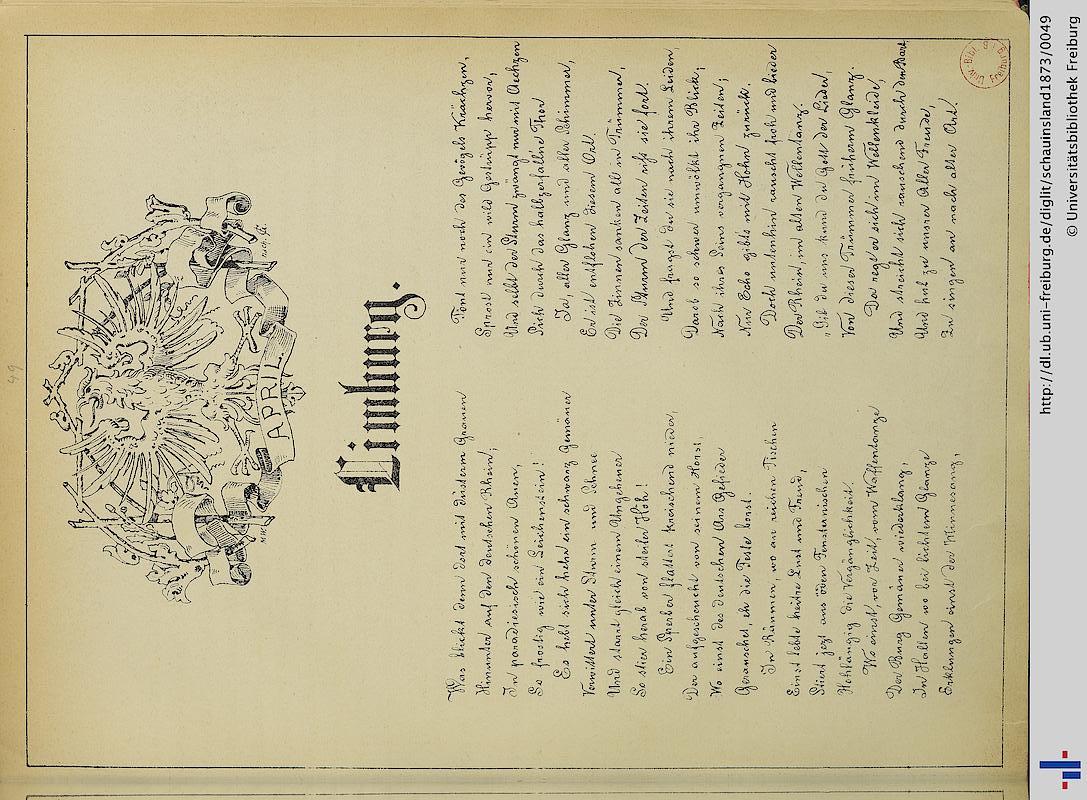 49
APRIL
M.W.
Limburg.
Was blickt denn dort mit düsterm Grauen
Hinunter auf den deutschen Rhein,
In paradiesisch schönen Auen,
So frostig wie ein Leichenstein!
Es hebt sich hehr ein schwarz Gemäuer
Verwittert unter Sturm und Schnee
Und starrt gleich einem Ungeheuer
So stier herab von steiler Höh!
Ein Sperber flattert kreischend nieder,
Der aufgescheucht von seinem Horst,
Wo einst des deutschen Aars Gefieder
Gerauschet, eh die Feste borst.
In Räumen, wo an reichen Tischen
Einst lebte heitre Lust und Freud,
Stiert jezt aus öden Fensternischen
Hohläugig die Vergänglichkeit.
Wo einst, vor Zeit, vom Waffentanze
Der Burg Gemäuer wiederklang,
In Hallen wo bei lichtem Glanze
Erklungen einst der Minnesang,
Tönt nur noch des Gevögels Krächzen,
Sprosst nur ein wild Gestrüpp hervor,
Und selbst der Sturm zwängt nur mit Aechzen
Sich durch das halbzerfallne Thor
Ja, aller Glanz und aller Schimmer,
Er ist entflohen diesem Ort.
Die Zinnen sanken all in Trümmer,
Der Sturm der Zeiten riss sie fort.
Und fragst du sie nach ihrem Leiden,
Darob so schwer umwölkt ihr Blick,
Nach ihres Seins vergangnen Zeiten;
Nur Echo gibts mit Hohn zurück.
Doch untenhin rauscht froh und bieder
Der Rhein im alten Wellentanz.
„Gib du uns kund du Gott der Lieder,
Von dieser Trümmer früherm Glanz.
Da regt er sich im Wellenkleide,
Und streicht sich rauschend durch den Bart,
Und hub zu unsrer Aller Freude,
Zu singen an nach alter Art.
Univ. Bibl. Freiburg
http://dl.ub.uni-freiburg.de/diglit/schauinsland1873/0049
© Universitätsbibliothek Freiburg